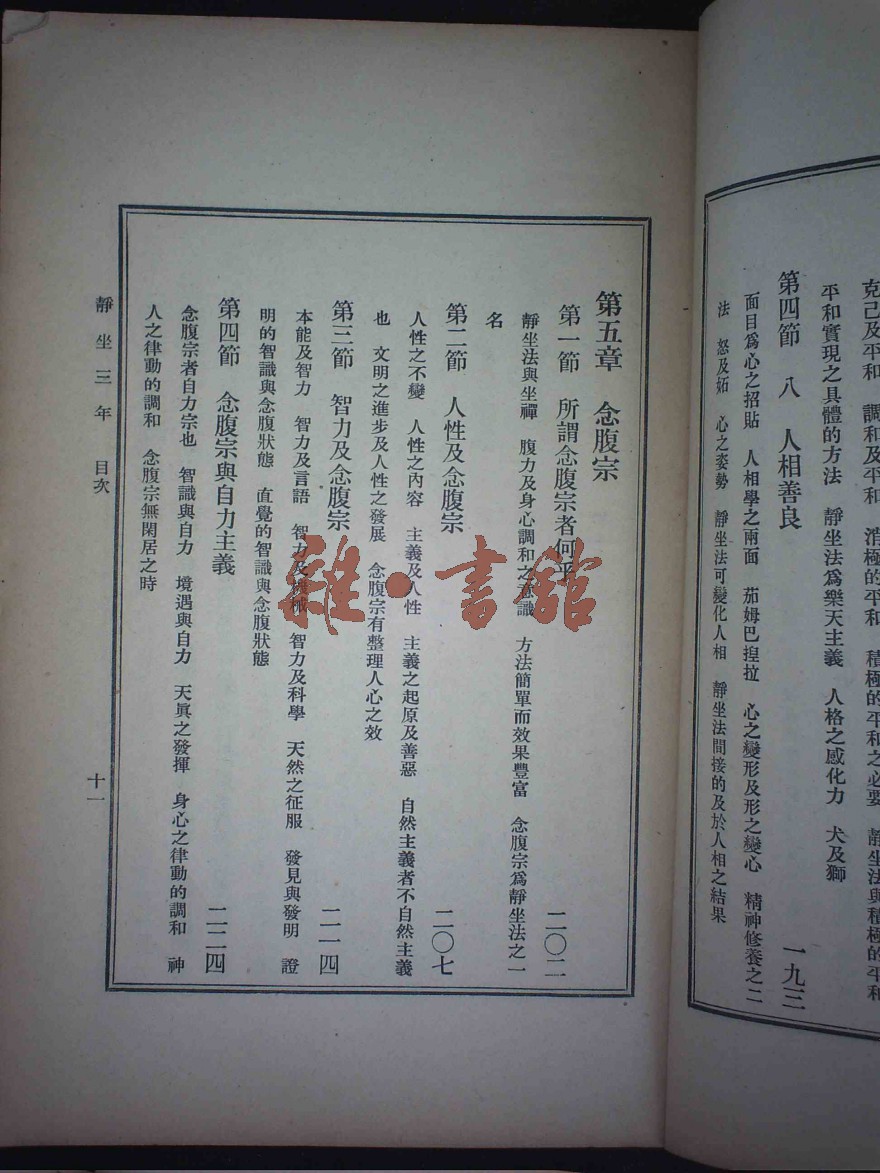 克己及平和　調和及平和　消極的平和　積極的平和之必要　靜坐法與積極的平和
平和實現之具體的方法　靜坐法爲樂天主義　人格之感化力　犬及獅
第四節　八　人相善良　一九三
面目爲心之招貼　人相學之兩面　茄姆巴揑拉　心之變形及形之變心　精神修養之二
法　怒及妬　心之姿勢　靜坐法可變化人相　靜坐法間接的及於人相之結果
第五章　念腹宗
第一節　所謂念腹宗者何乎　二〇二
靜坐法與坐禪　腹力及身心調和之意識　方法簡單而效果豐富　念腹宗爲靜坐法之一
名
第二節　人性及念腹宗　二〇七
人性之不變　人性之內容　主義及人性　主義之起原及善惡　自然主義者不自然主義
也　文明之進步及人性之發展　念腹宗有整理人心之效
第三節　智力及念腹宗　二一四
本能及智力　智力及言語　智力及機械　智力及科學　天然之征服　發見與發明　證
明的智識與念腹狀態　直覺的智識與念腹狀態
第四節　念腹宗與自力主義　二二四
念腹宗者自力宗也　智識與自力　境遇與自力　天眞之發揮　身心之律動的調和　神
人之律動的調和　念腹宗無閑居之時
靜坐三年　目次　十一
雜·書館